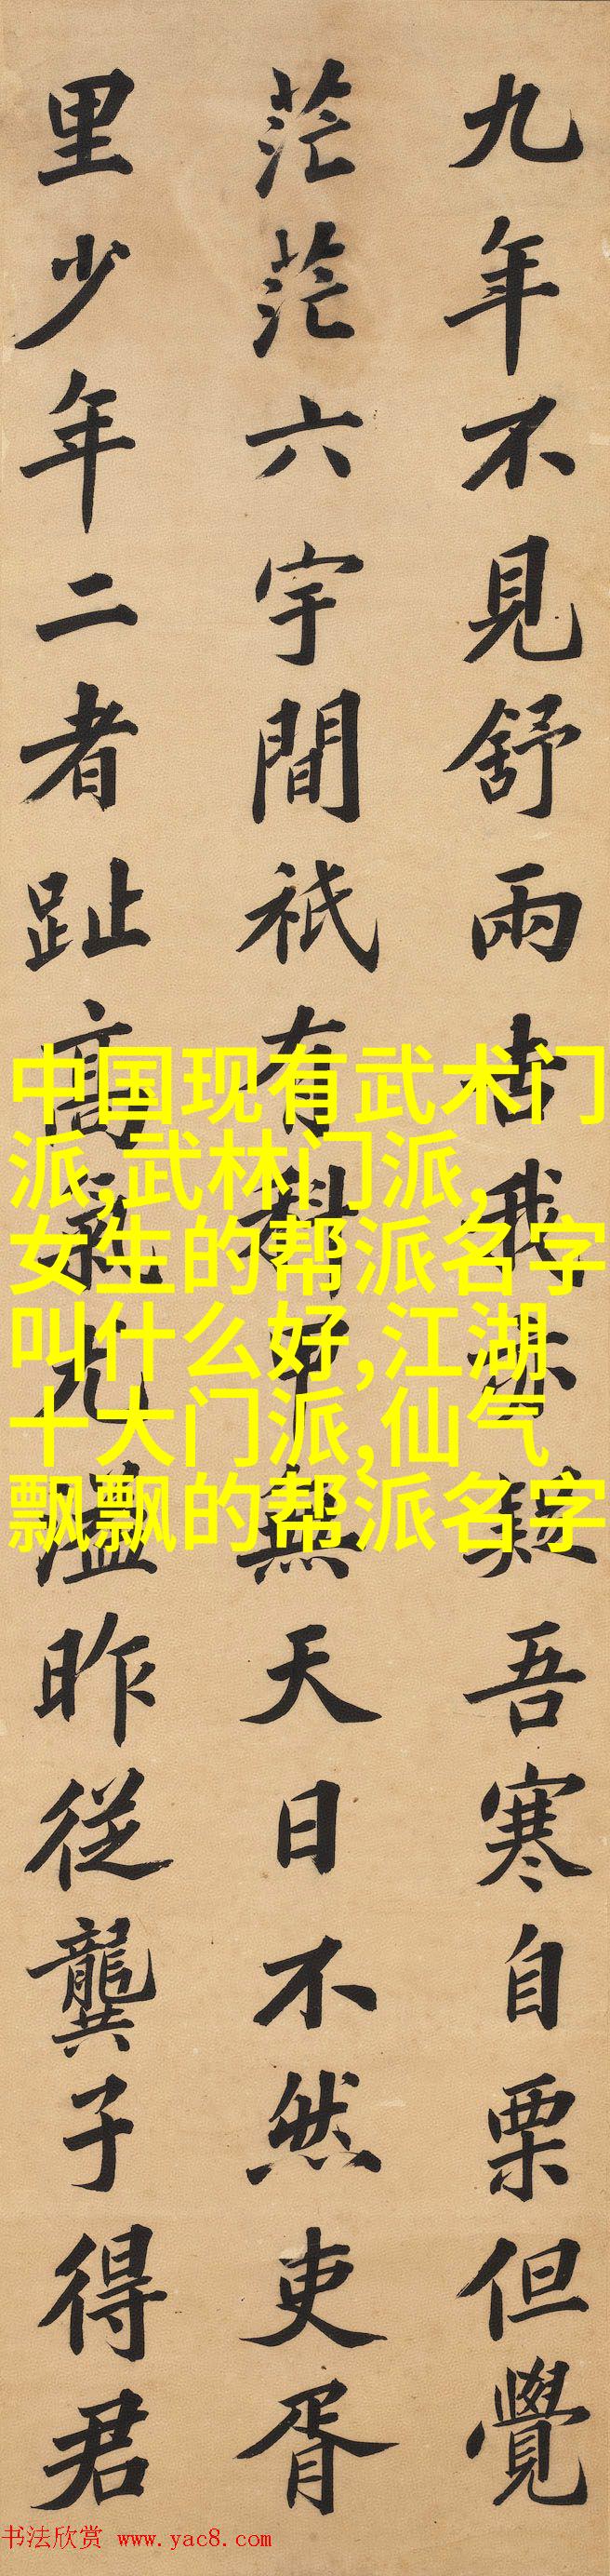 九年不見舒雨古我疑吾寒自栗但覺
茫茫六宇間祇有科甲無天日不然吏胥
里少年二者趾高氣尤溢昨從龔子得君
中国现有武术门
派,武林门派,
女生的帮派名字
叫什么好,江湖
十大门派,仙气
飘飘的帮派名字
书法欣赏 www.yac8.com